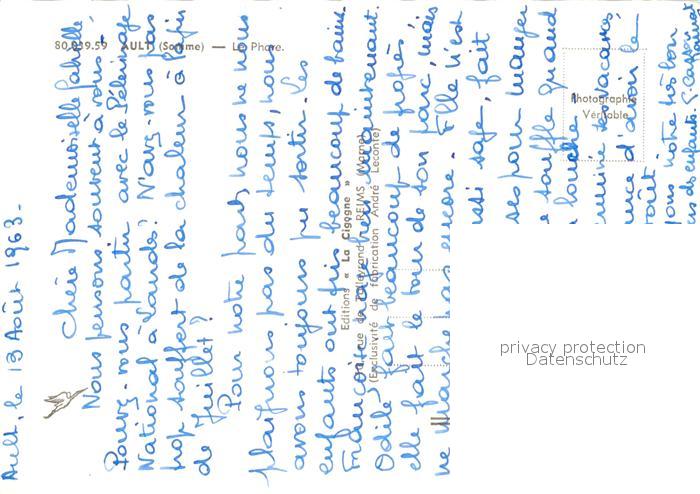 Ault, le 13 Août 1963.
Chère Mademoiselle
Nous pensons souvent à vous.
Pouvez-vous partir avec le Pélerinage
National à Lourdes? N'avez-vous pas
trop souffert de la chaleur à Paris
de Juillet?
Pour notre part, nous ne nous
plaignons pas du temps, nous
avons toujours pu sortir. Les
enfants ont pris beaucoup de bains.
François nage bien maintenant.
Odile fait beaucoup de progrès
elle fait le tour de son parc, mais
ne marche pas encore. Elle n'est
ssi sage, fait
ses pour manger
souffle quand
louche
vacances
ance d'avoir le
août.
lons notre très bon
80.039.59 AULT (Somme) — Le Phare.
Editions « La Cigogne »
rue de Talleyrand - REIMS (Marne)
(Exclusivité de fabrication André Leconte)
Photographie
Véritable
privacy protection
Datenschutz